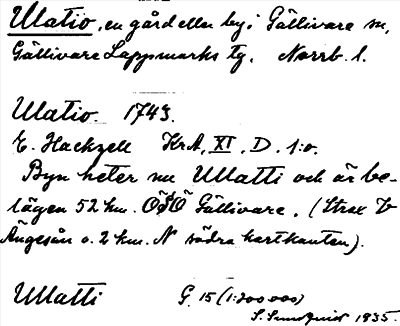 Ulatio, en gård eller by i Gällivare sn,
Gällivare Lappmarks tg. Norrb. l.
Ulatio. 1743.
E. Hackzell KrA, XI. D. 1:o.
Byn heter nu Ullatti och är be-
lägen 52 km. OSO Gällivare. (Strax V
Ängesån o. 2 km. N södra kartkanten).
Ullatti G. 15 (1:200 000)
S. Sundquist 1935.